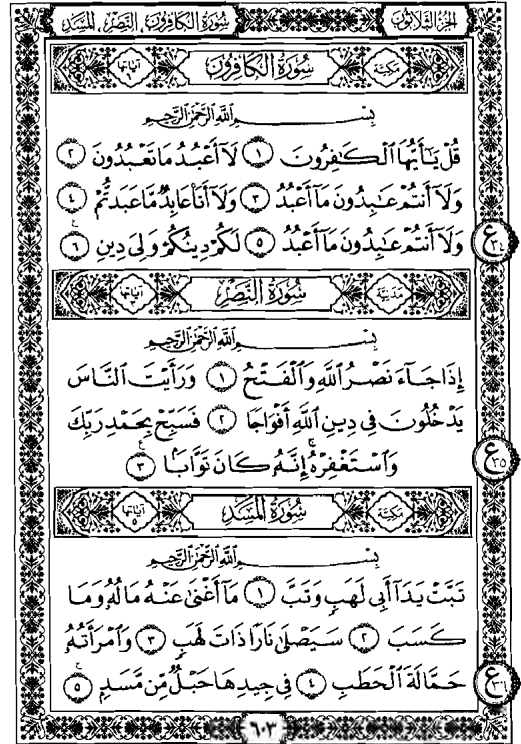 الجزء الثلاثون سورة الكافرون، النصر، المسد
مكية سورة الكافرون آياتها
بسم الله الرحمن الرحيم
قُلْ يَٰٓأَيُّهَا ٱلْكَٰفِرُونَ ١ لَآ أَعْبُدُ مَا تَعْبُدُونَ ٢
وَلَآ أَنتُمْ عَٰبِدُونَ مَآ أَعْبُدُ ٣ وَلَآ أَنَا۠ عَابِدٌ مَّا عَبَدتُّمْ ٤
وَلَآ أَنتُمْ عَٰبِدُونَ مَآ أَعْبُدُ ٥ لَكُمْ دِينُكُمْ وَلِىَ دِينِ ٦
ع ٣٤
مدنية سورة النصر آياتها
بسم الله الرحمن الرحيم
إِذَا جَآءَ نَصْرُ ٱللَّهِ وَٱلْفَتْحُ ١ وَرَأَيْتَ ٱلنَّاسَ
يَدْخُلُونَ فِى دِينِ ٱللَّهِ أَفْوَاجًا ٢ فَسَبِّحْ بِحَمْدِ رَبِّكَ
وَٱسْتَغْفِرْهُ إِنَّهُۥ كَانَ تَوَّابًۢا ٣
ع ٣٥
مكية سورة المسد آياتها ٥
بسم الله الرحمن الرحيم
تَبَّتْ يَدَآ أَبِى لَهَبٍ وَتَبَّ ١ مَآ أَغْنَىٰ عَنْهُ مَالُهُۥ وَمَا
كَسَبَ ٢ سَيَصْلَىٰ نَارًا ذَاتَ لَهَبٍ ٣ وَٱمْرَأَتُهُۥ
حَمَّالَةَ ٱلْحَطَبِ ٤ فِى جِيدِهَا حَبْلٌ مِّن مَّسَدٍۭ ٥
ع ٣٦
٦٠٣